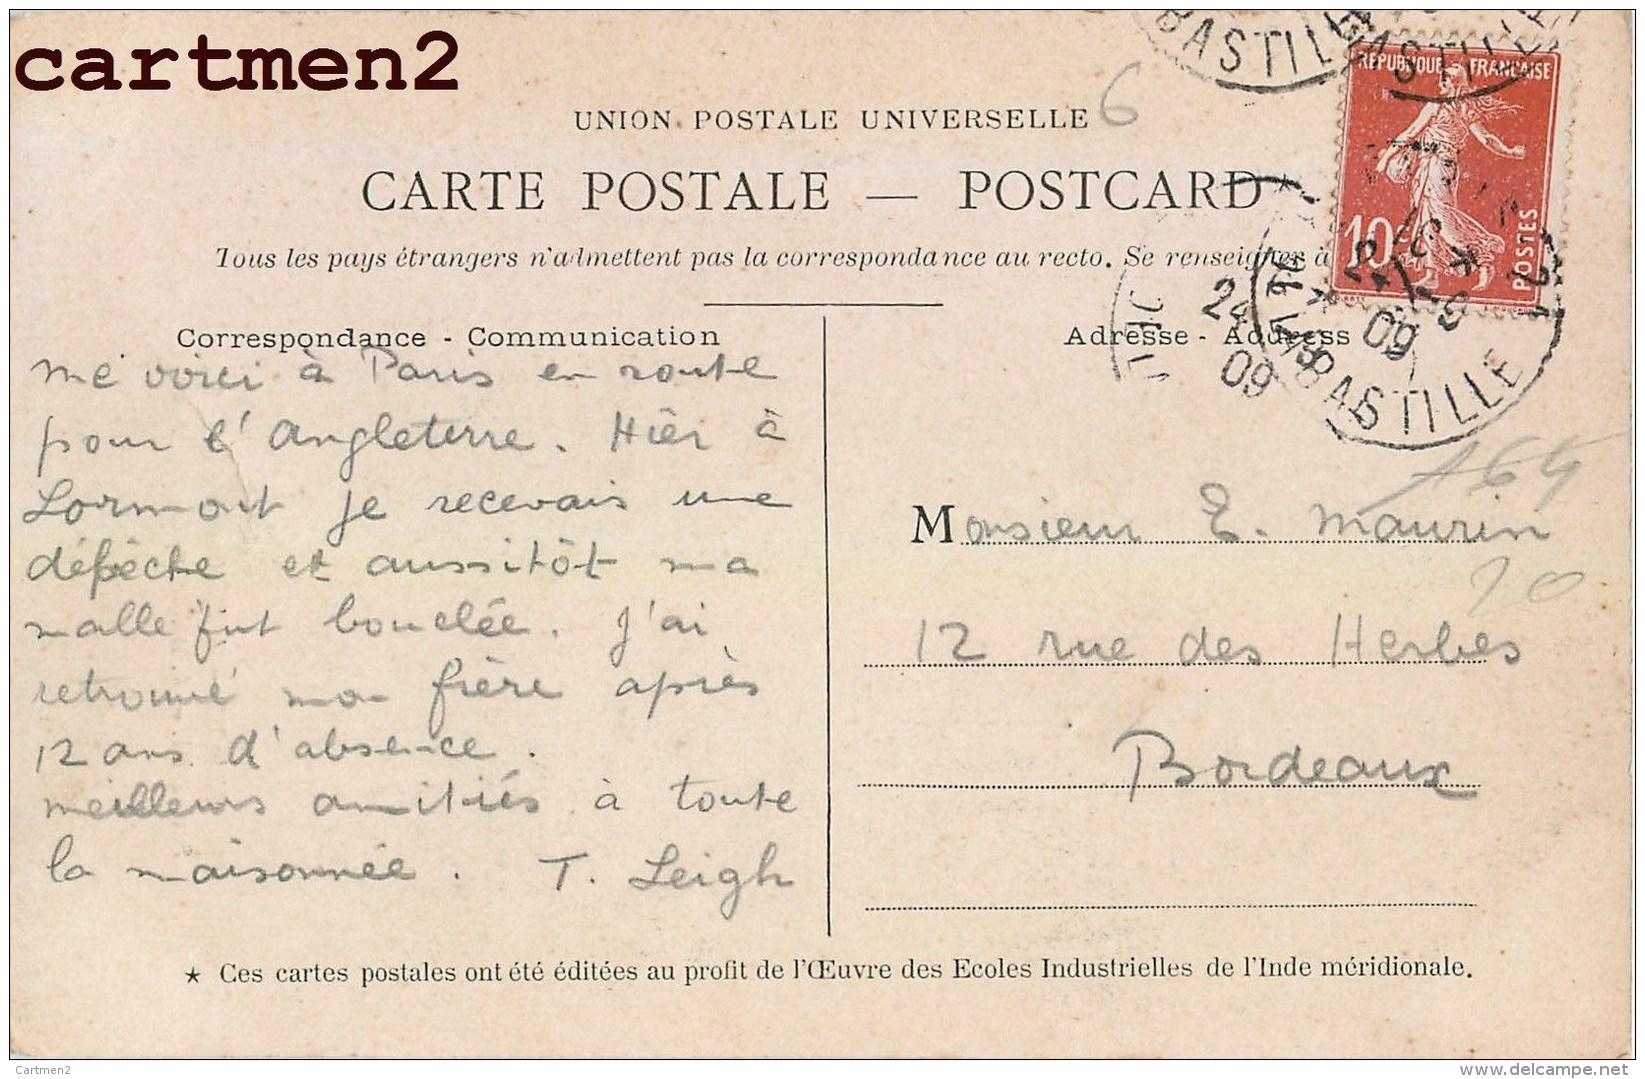 cartmen2
BASTILLE
BASTILLE
6
RÉPUBLIQUE FRANÇAISE
10c
POSTES
UNION POSTALE UNIVERSELLE
CARTE POSTALE — POSTCARD
Tous les pays étrangers n'admettent pas la correspondance au recto. Se renseigner à
24
09
09
BASTILLE
Correspondance - Communication
Adresse - Address
me voici à Paris en route
pour l'Angleterre. Hier à
Lormont je recevais une
dépêche et aussitôt ma
malle fut bouclée. J'ai
retrouvé mon frère après
12 ans d'absence.
meilleurs amitiés à toute
la maisonnée. T. Leigh
Monsieur E. Maurin
12 rue des Herbes
Bordeaux
★ Ces cartes postales ont été éditées au profit de l'Œuvre des Ecoles Industrielles de l'Inde méridionale.
Cartmen2
delcampe.net